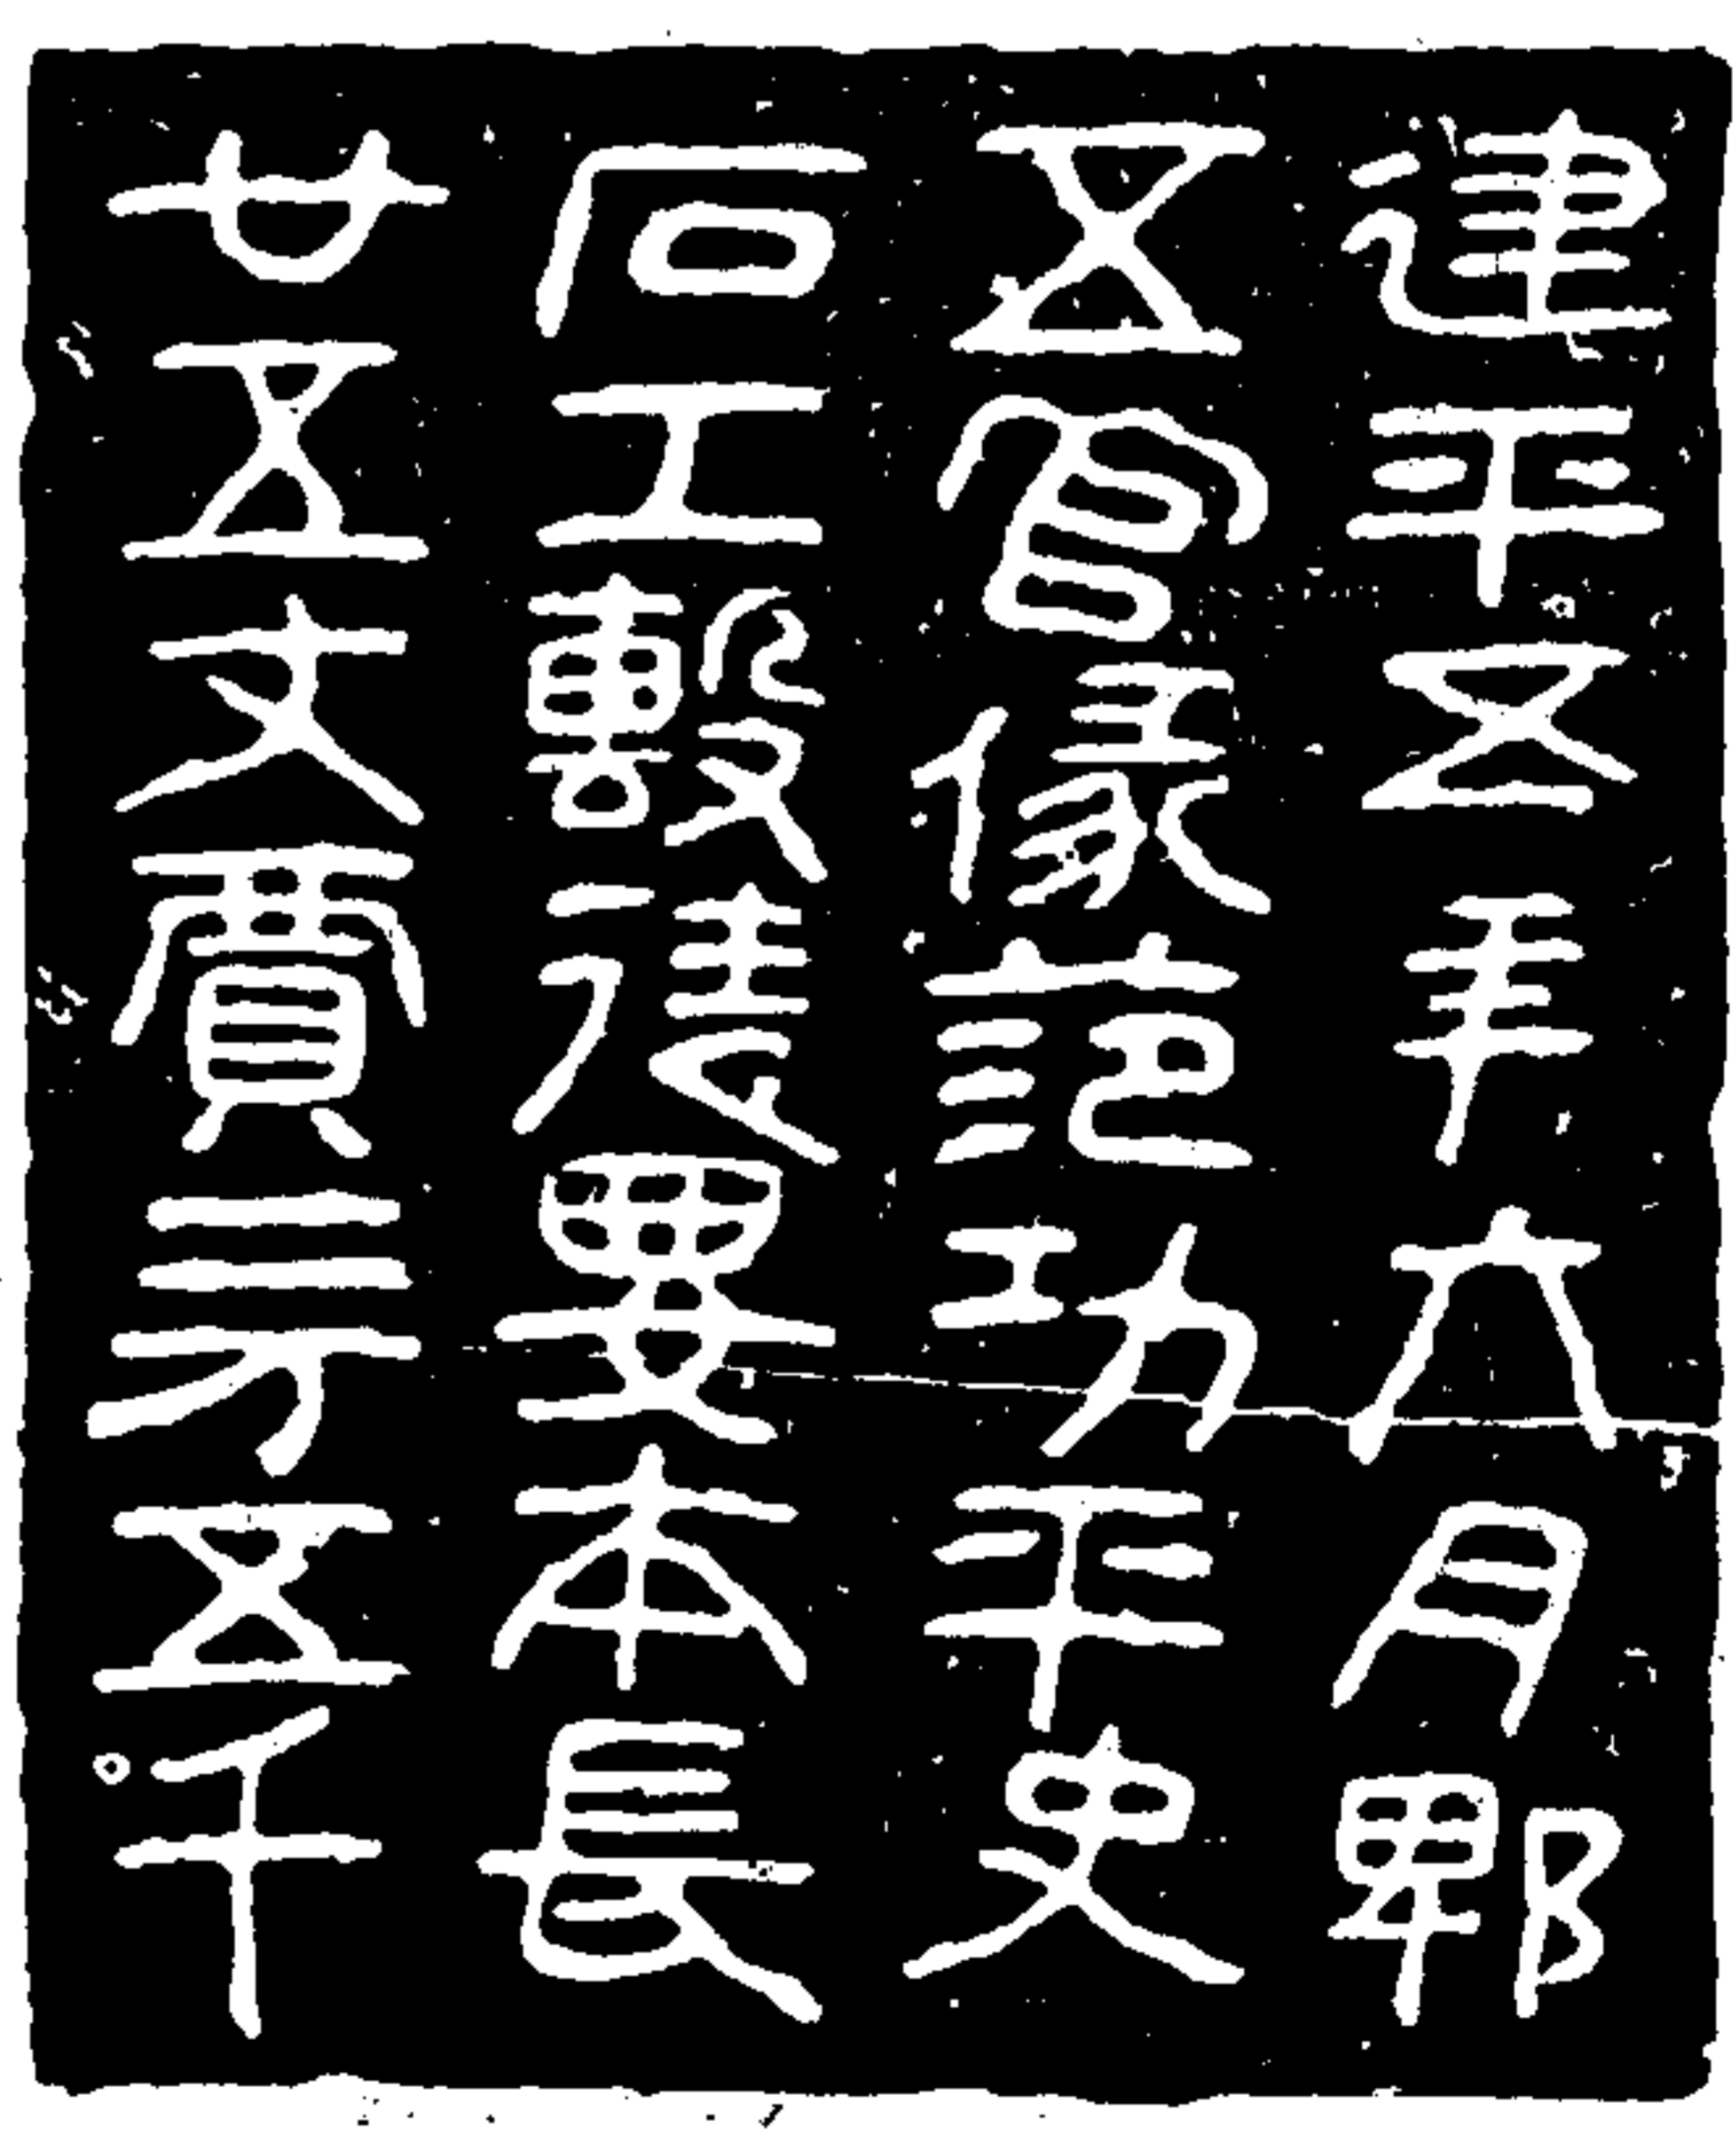 建平五年六月郫
五官掾范功平史
石工毄徒要本長
廿五丈賈二万五千